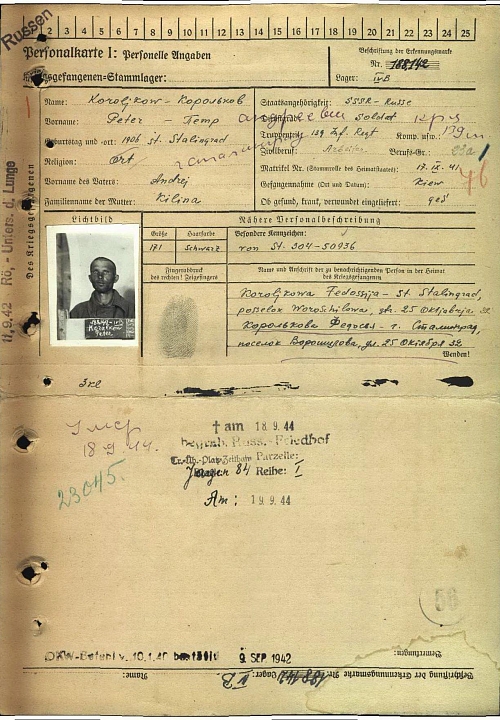 Russen
1 2 3 4 5 6 7 8 9 10 11 12 13 14 15 16 17 18 19 20 21 22 23 24 25
Personalkarte I: Personelle Angaben
Kriegsgefangenen-Stammlager:
Beschriftung der Erkennungsmarke
Nr. 188142
Lager: IV B
Des Kriegsgefangenen
11.9.42 Rö.- Unters. d. Lunge
Name: Koroljkow - Корольков
Vorname: Peter - Петр
Geburtstag und -ort: 1906 St. Stalingrad
Religion: Ort.
Vorname des Vaters: Andrej
Familienname der Mutter: Kilina
Staatsangehörigkeit: SSSR - Russe
Dienstgrad: Soldat
Truppenteil: 139 Inf. Regt Komp. usw.:
Zivilberuf: Arbeiter Berufs-Gr.: 23a
Matrikel Nr. (Stammrolle des Heimatstaates): 17. IX. 41
Gefangennahme (Ort und Datum): Kiew
Ob gesund, krank, verwundet eingeliefert: ges
Lichtbild
Nähere Personalbeschreibung
Größe Haarfarbe Besondere Kennzeichen:
171 Schwarz von St. 304-50936
Fingerabdruck
des rechten! Zeigefingers
Name und Anschrift der zu benachrichtigenden Person in der Heimat
des Kriegsgefangenen
Koroljkowa Fedossija - St. Stalingrad,
poselok Woroschilowa, 25 Oktjabrja 32
Королькова Федосья - г. Сталинград,
поселок Ворошилова, ул. 25 Октября 32
Wenden!
Умер
18 9 44.
23045.
† am 18.9.44
begrab. Russ.-Friedhof
Tr.-Üb.-Platz Zeithain Parzelle:
84 Reihe: I
Am: 19.9.44
56
OKW-Befehl v. 10.1.40 bestätigt 9. SEP. 1942
Bemerkungen:
Beschriftung der Erkennungsmarke Nr. 188142 Lager: IV B
Name: